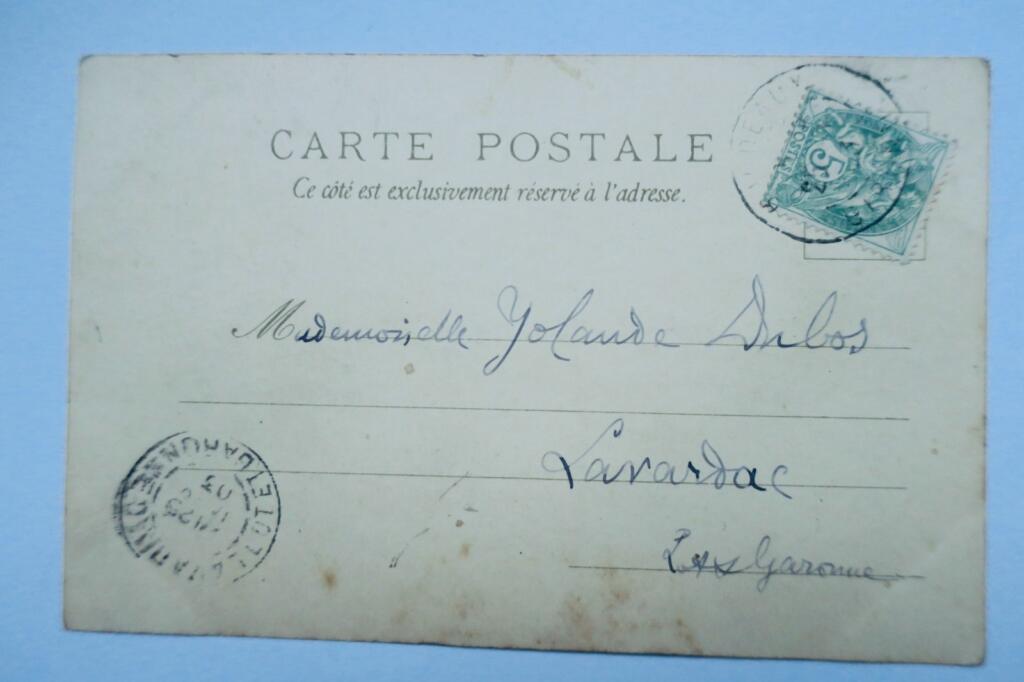 CARTE POSTALE
Ce côté est exclusivement réservé à l'adresse.
5
Mademoiselle Yolande Dubos
Lavardac
Garonne
LOT ET GARONNE
03